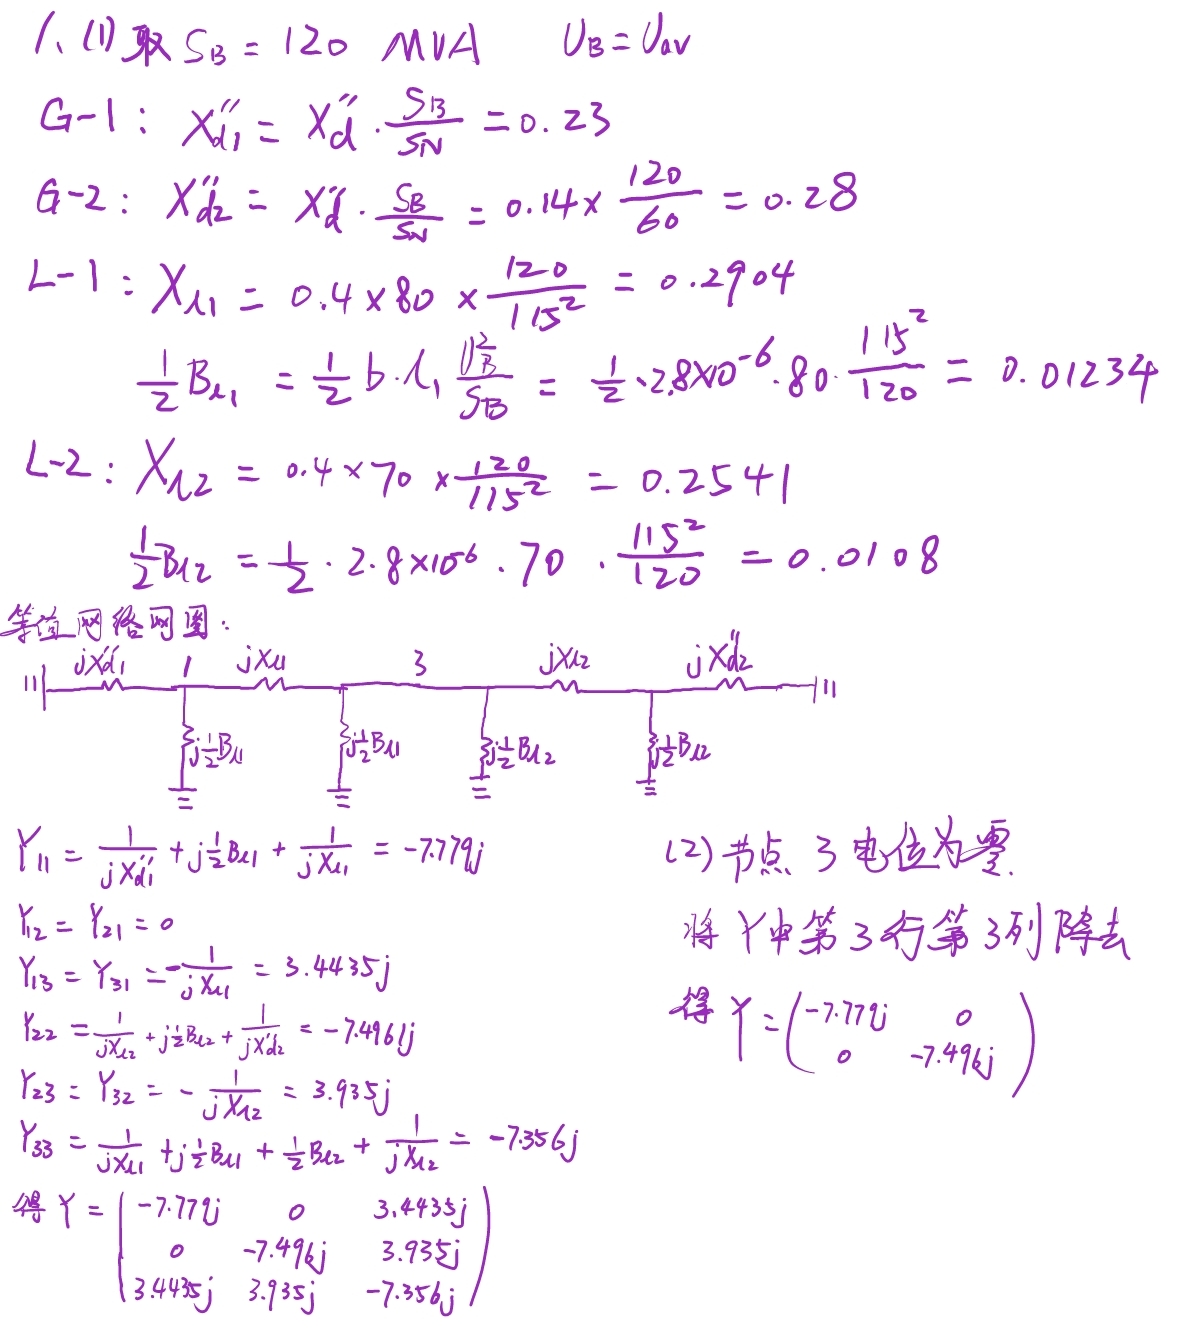 1. (1) 取 S_B = 120 MVA U_B = U_av
G-1: X''_d1 = X''_d · S_B/S_N = 0.23
G-2: X''_d2 = X''_d · S_B/S_N = 0.14 × 120/60 = 0.28
L-1: X_l1 = 0.4 × 80 × 120/115² = 0.2904
1/2 B_l1 = 1/2 b · l_1 U_B²/S_B = 1/2 · 2.8×10⁻⁶ · 80 · 115²/120 = 0.01234
L-2: X_l2 = 0.4 × 70 × 120/115² = 0.2541
1/2 B_l2 = 1/2 · 2.8×10⁻⁶ · 70 · 115²/120 = 0.0108
等值网络网图:
jX''_d1 1 jX_l1 3 jX_l2 jX''_d2
j1/2B_l1 j1/2B_l1 j1/2B_l2 j1/2B_l2
Y_11 = 1/jX''_d1 + j1/2B_l1 + 1/jX_l1 = -7.779j
Y_12 = Y_21 = 0
Y_13 = Y_31 = -1/jX_l1 = 3.4435j
Y_22 = 1/jX_l2 + j1/2B_l2 + 1/jX''_d2 = -7.4961j
Y_23 = Y_32 = -1/jX_l2 = 3.935j
Y_33 = 1/jX_l1 + j1/2B_l1 + 1/2B_l2 + 1/jX_l2 = -7.356j
得 Y =
-7.779j 0 3.4435j
0 -7.496j 3.935j
3.4435j 3.935j -7.356j
(2) 节点 3 电位为零.
将 Y中第3行第3列除去
得 Y =
-7.779j 0
0 -7.496j